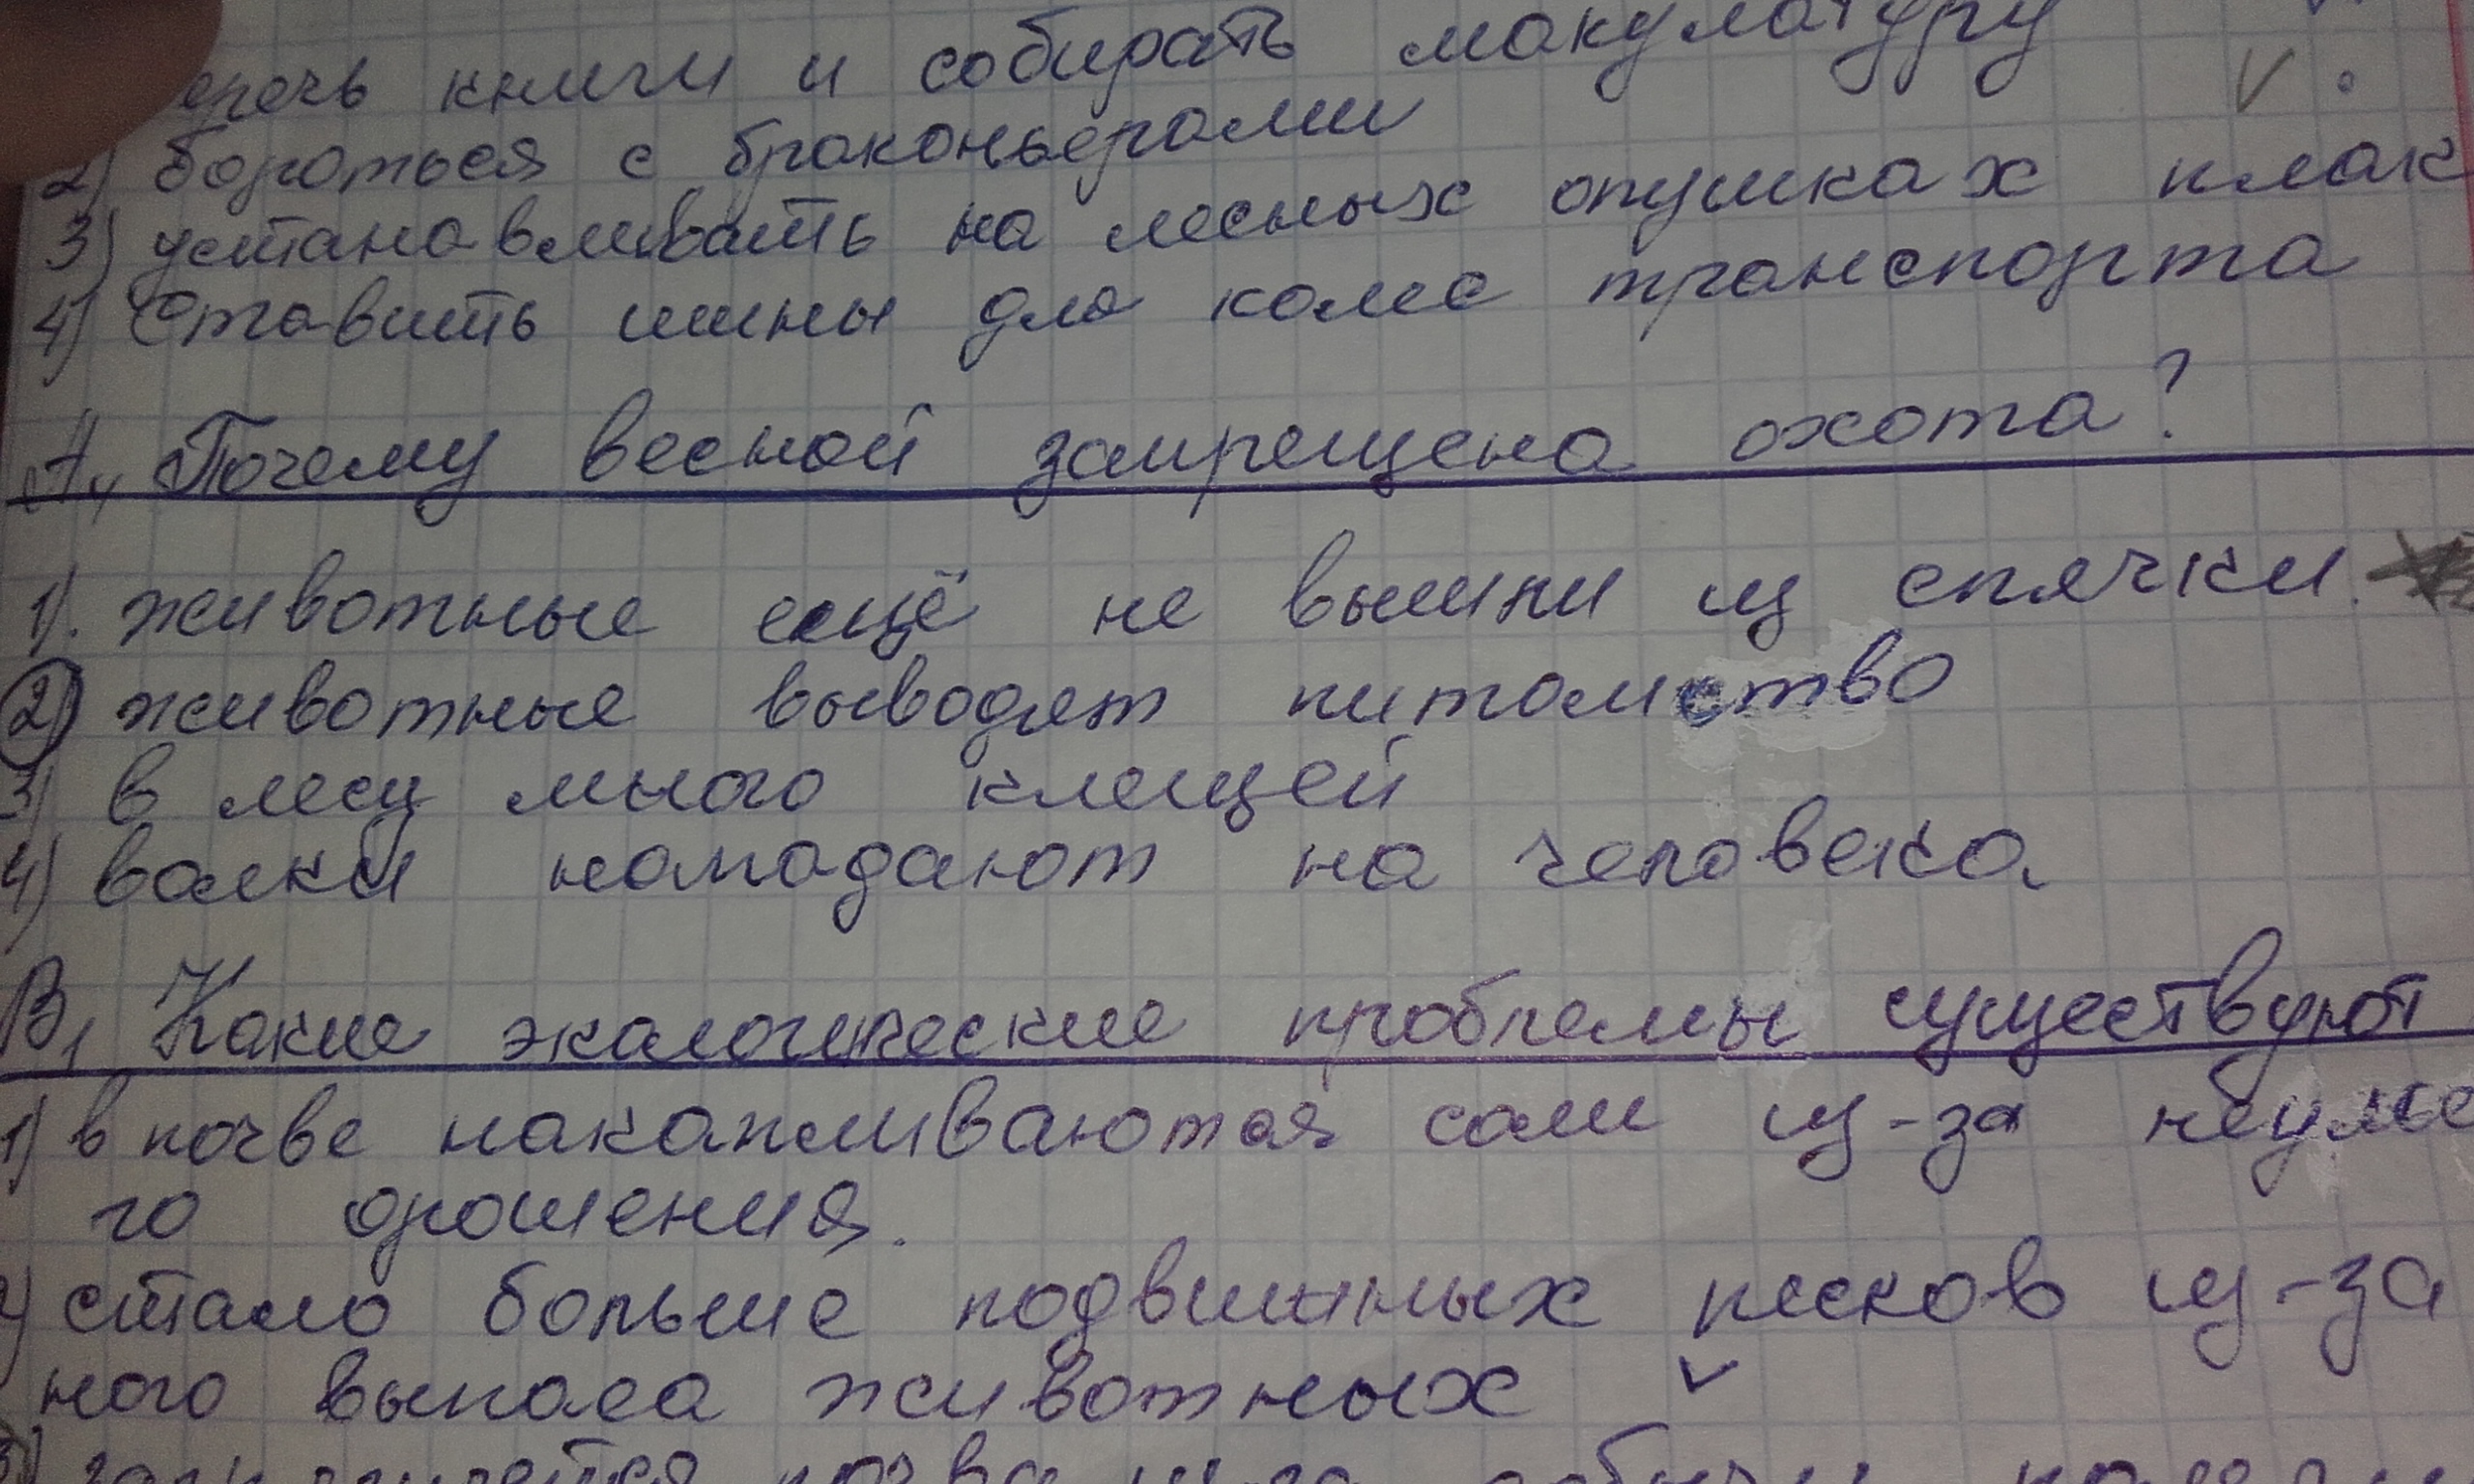 книги и собирать макулатуру
2) бороться с браконьерами
3) устанавливать на лесных опушках плак
4) Ставить шины для колёс транспорта
А. Почему весной запрещена охота?
1). животные ещё не вышли из спячки.
2) животные выводят питомство
3) в лесу много клещей
4) волки нападают на человека
В1 Какие экологические проблемы существуют
1) в почве накапливаются соли из-за неуме
го орошения.
стало больше подвижных песков из-за
ного выпаса животных